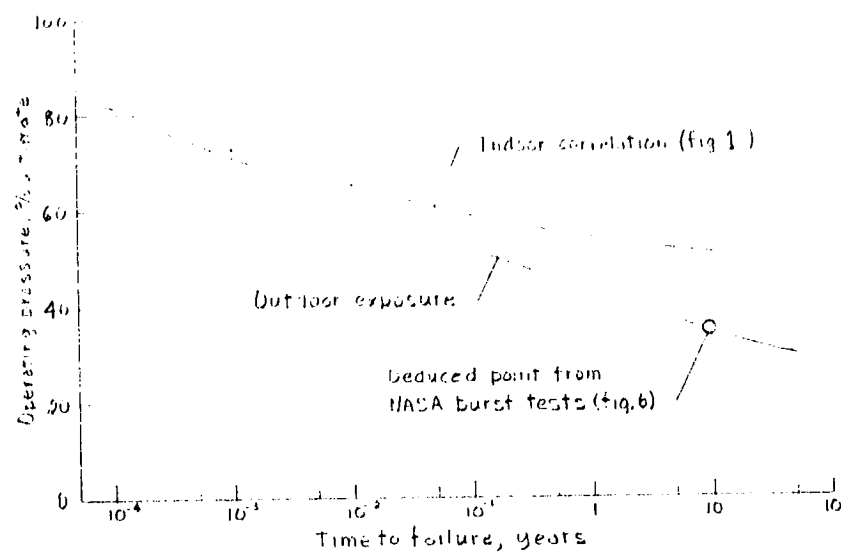 100
80
60
40
20
0
Operating pressure, %
Indoor correlation (fig 1)
Outdoor exposure
Deduced point from
NASA burst tests (fig. 6)
10⁻⁴ 10⁻³ 10⁻² 10⁻¹ 1 10 10
Time to failure, years